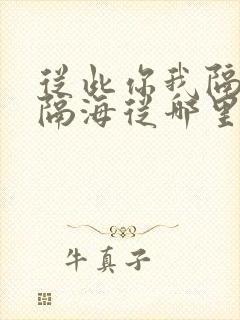 從此你我隔
隔海從哪里
牛真子